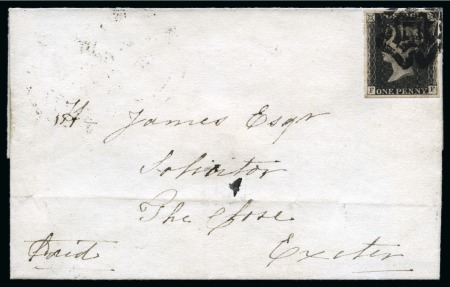 ONE PENNY
H. James Esqr
Solicitor
The Close
Exeter
Paid